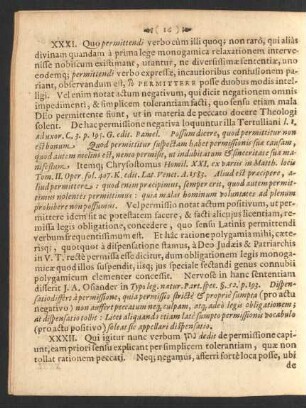 -❧( 12 )☙-
XXXI. Quo permittendi verbo cùm illi quoq; non rarò, qui aliàs
divinam quandam à prima lege monogamica relaxationem interve-
nisse nobiscum existimant, utantur, ne diversissimæ sententiæ, uno
eodemq; permittendi verbo expressæ, incautioribus confusionem pa-
riant, observandum est, τὸ PERMITTERE posse duobus modis intel-
ligi. Vel enim notat actum negativum, qui dicit negationem omnis
impedimenti, & simplicem tolerantiam facti, quo sensu etiam mala
Deo permittente fiunt, ut in materia de peccato docere Theologi
solent. De hac permissione negativa loquuntur illa Tertulliani l. 1.
ad uxor. C. 3. p. 191. G. edit. Pamel. Possum dicere, quod permittitur non
est bonum. Quod permittitur suspectam habet permissionis suæ causam,
quod autem melius est, nemo permisit, ut indubitatum & sinceritate suâ ma-
nifestum. Itemq; Chrysostomus Homil. XXI. ex variis in Matth. locis
Tom. II. Oper. fol. 927. K. edit. Lat. Venet. A. 1583. Aliud est præcipere,
aliud permittere: quod enim præcipimus, semper erit, quod autem permit-
timus nolentes permittimus: quia malam hominum voluntatem ad plenum
prohibere non possumus. Vel permissio notat actum positivum, ut per-
mittere idem sit ac potestatem facere, & facti alicujus licentiam, re-
missâ legis obligatione, concedere, quo sensu Latinis permittendi
verbum frequentissimum est. Et hac ratione polygamia mihi, cæte-
risq; quotquot à dispensatione stamus, à Deo Judæis & Patriarchis
in V. T. rectè permissa esse dicitur, dum obligationem legis monoga-
micæ quodillos suspendit, iisq; jus speciale sectandi genus connubii
polygamicum clementer concessit. Nervosè in hanc sententiam
disserit J. A. Osiander in Typo leg. natur. Part. spec. §. 52. p. 193. Dispen-
satio differt à permissione, quia permissio strictè & propriè sumpta (pro actu
negativo) non aufert peccatum neq; culpam, atq; adeò legis obligationem;
at dispensatio tollit: Latè aliquando etiam latè sumpto permissionis vocabulo
(pro actu positivo) solet sic appellari dispensatio.
XXXII. Qui igitur nunc verbum דבר dedit de permissione capi-
unt, eam priori sensu explicant per simplicem tolerantiam, quæ non
tollat rationem peccati. Neq; negamus, afferri fortè loca posse, ubi
de